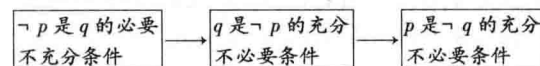 ¬p是q的必要
不充分条件
q是¬p的充分
不必要条件
p是¬q的充分
不必要条件